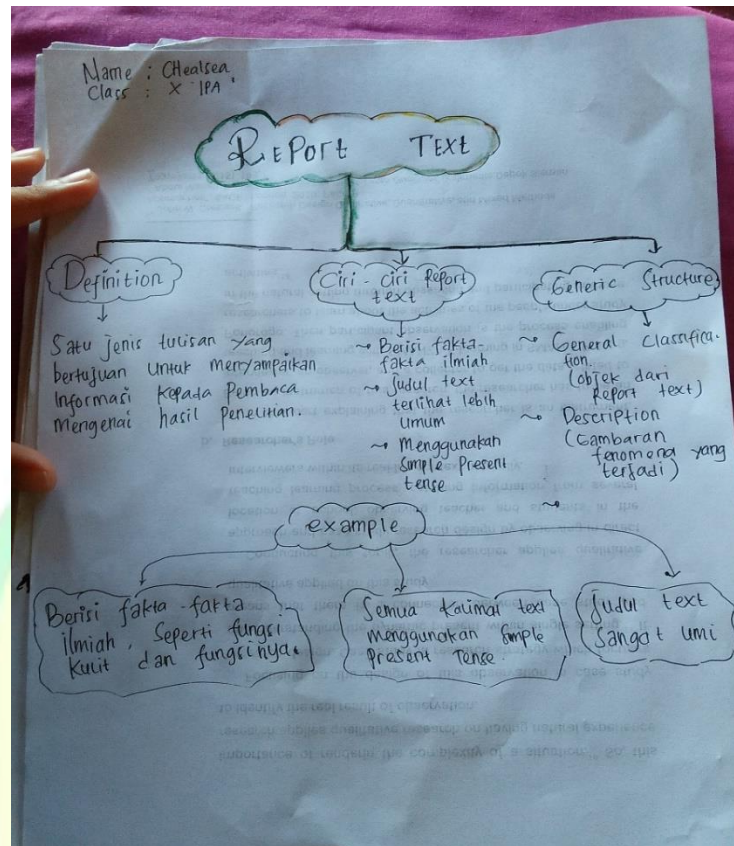 Name : CHealsea
Class : X IPA
REPort TEXt
Definition
Satu jenis tulisan yang
bertujuan untuk menyampaikan
Informasi kepada Pembaca
Mengenai hasil Penelitian.
Ciri-ciri Report
text
Berisi fakta-
fakta ilmiah
judul text
terlihat lebih
umum
Menggunakan
Simple Present
tense
Generic Structure
General Classifica-
tion.
(objek dari
Report text)
Description
(Gambaran
fenomena yang
terjadi)
example
Berisi fakta-fakta
ilmiah, Seperti fungsi
kulit dan fungsinya.
Semua Kalimat text
menggunakan Simple
Present Tense.
Judul text
Sangat umi